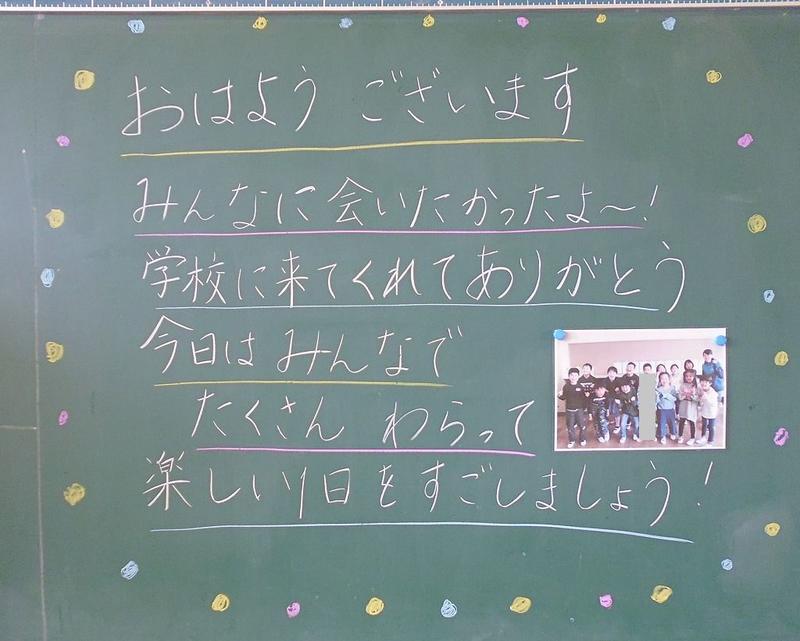 おはよう ございます
みんなに会いたかったよ〜!
学校に来てくれてありがとう
今日は みんなで
たくさん わらって
楽しい1日をすごしましょう!